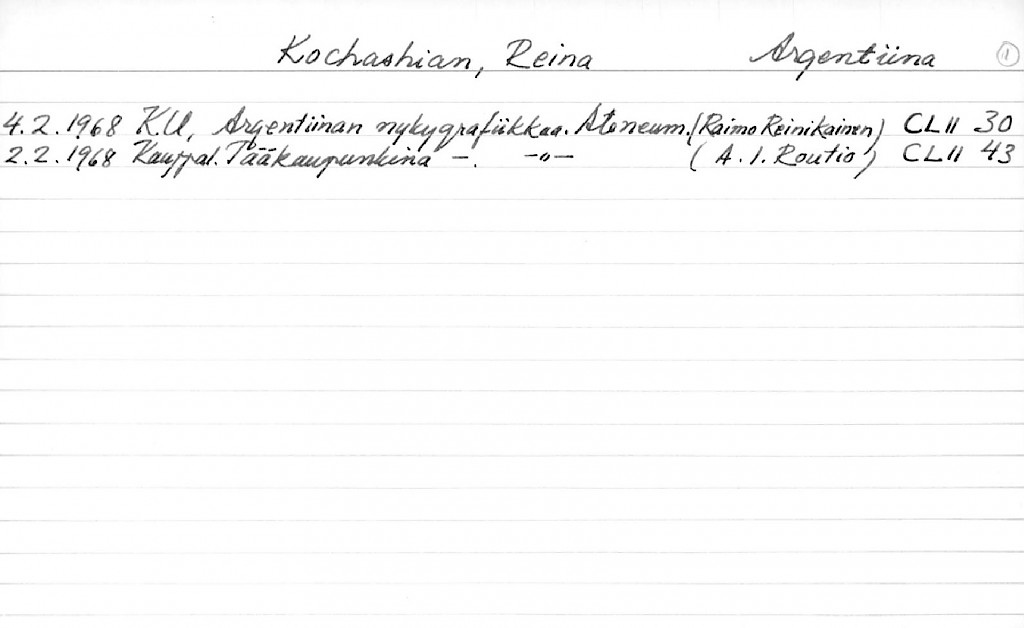 Kochashian, Reina Argentiina 1
4.2.1968 K.U, Argentiinan nykygrafiikkaa. Ateneum. (Raimo Reinikainen) CLII 30
2.2.1968 Kauppal. Pääkaupunkina –. –"– (A.I. Routio) CLII 43